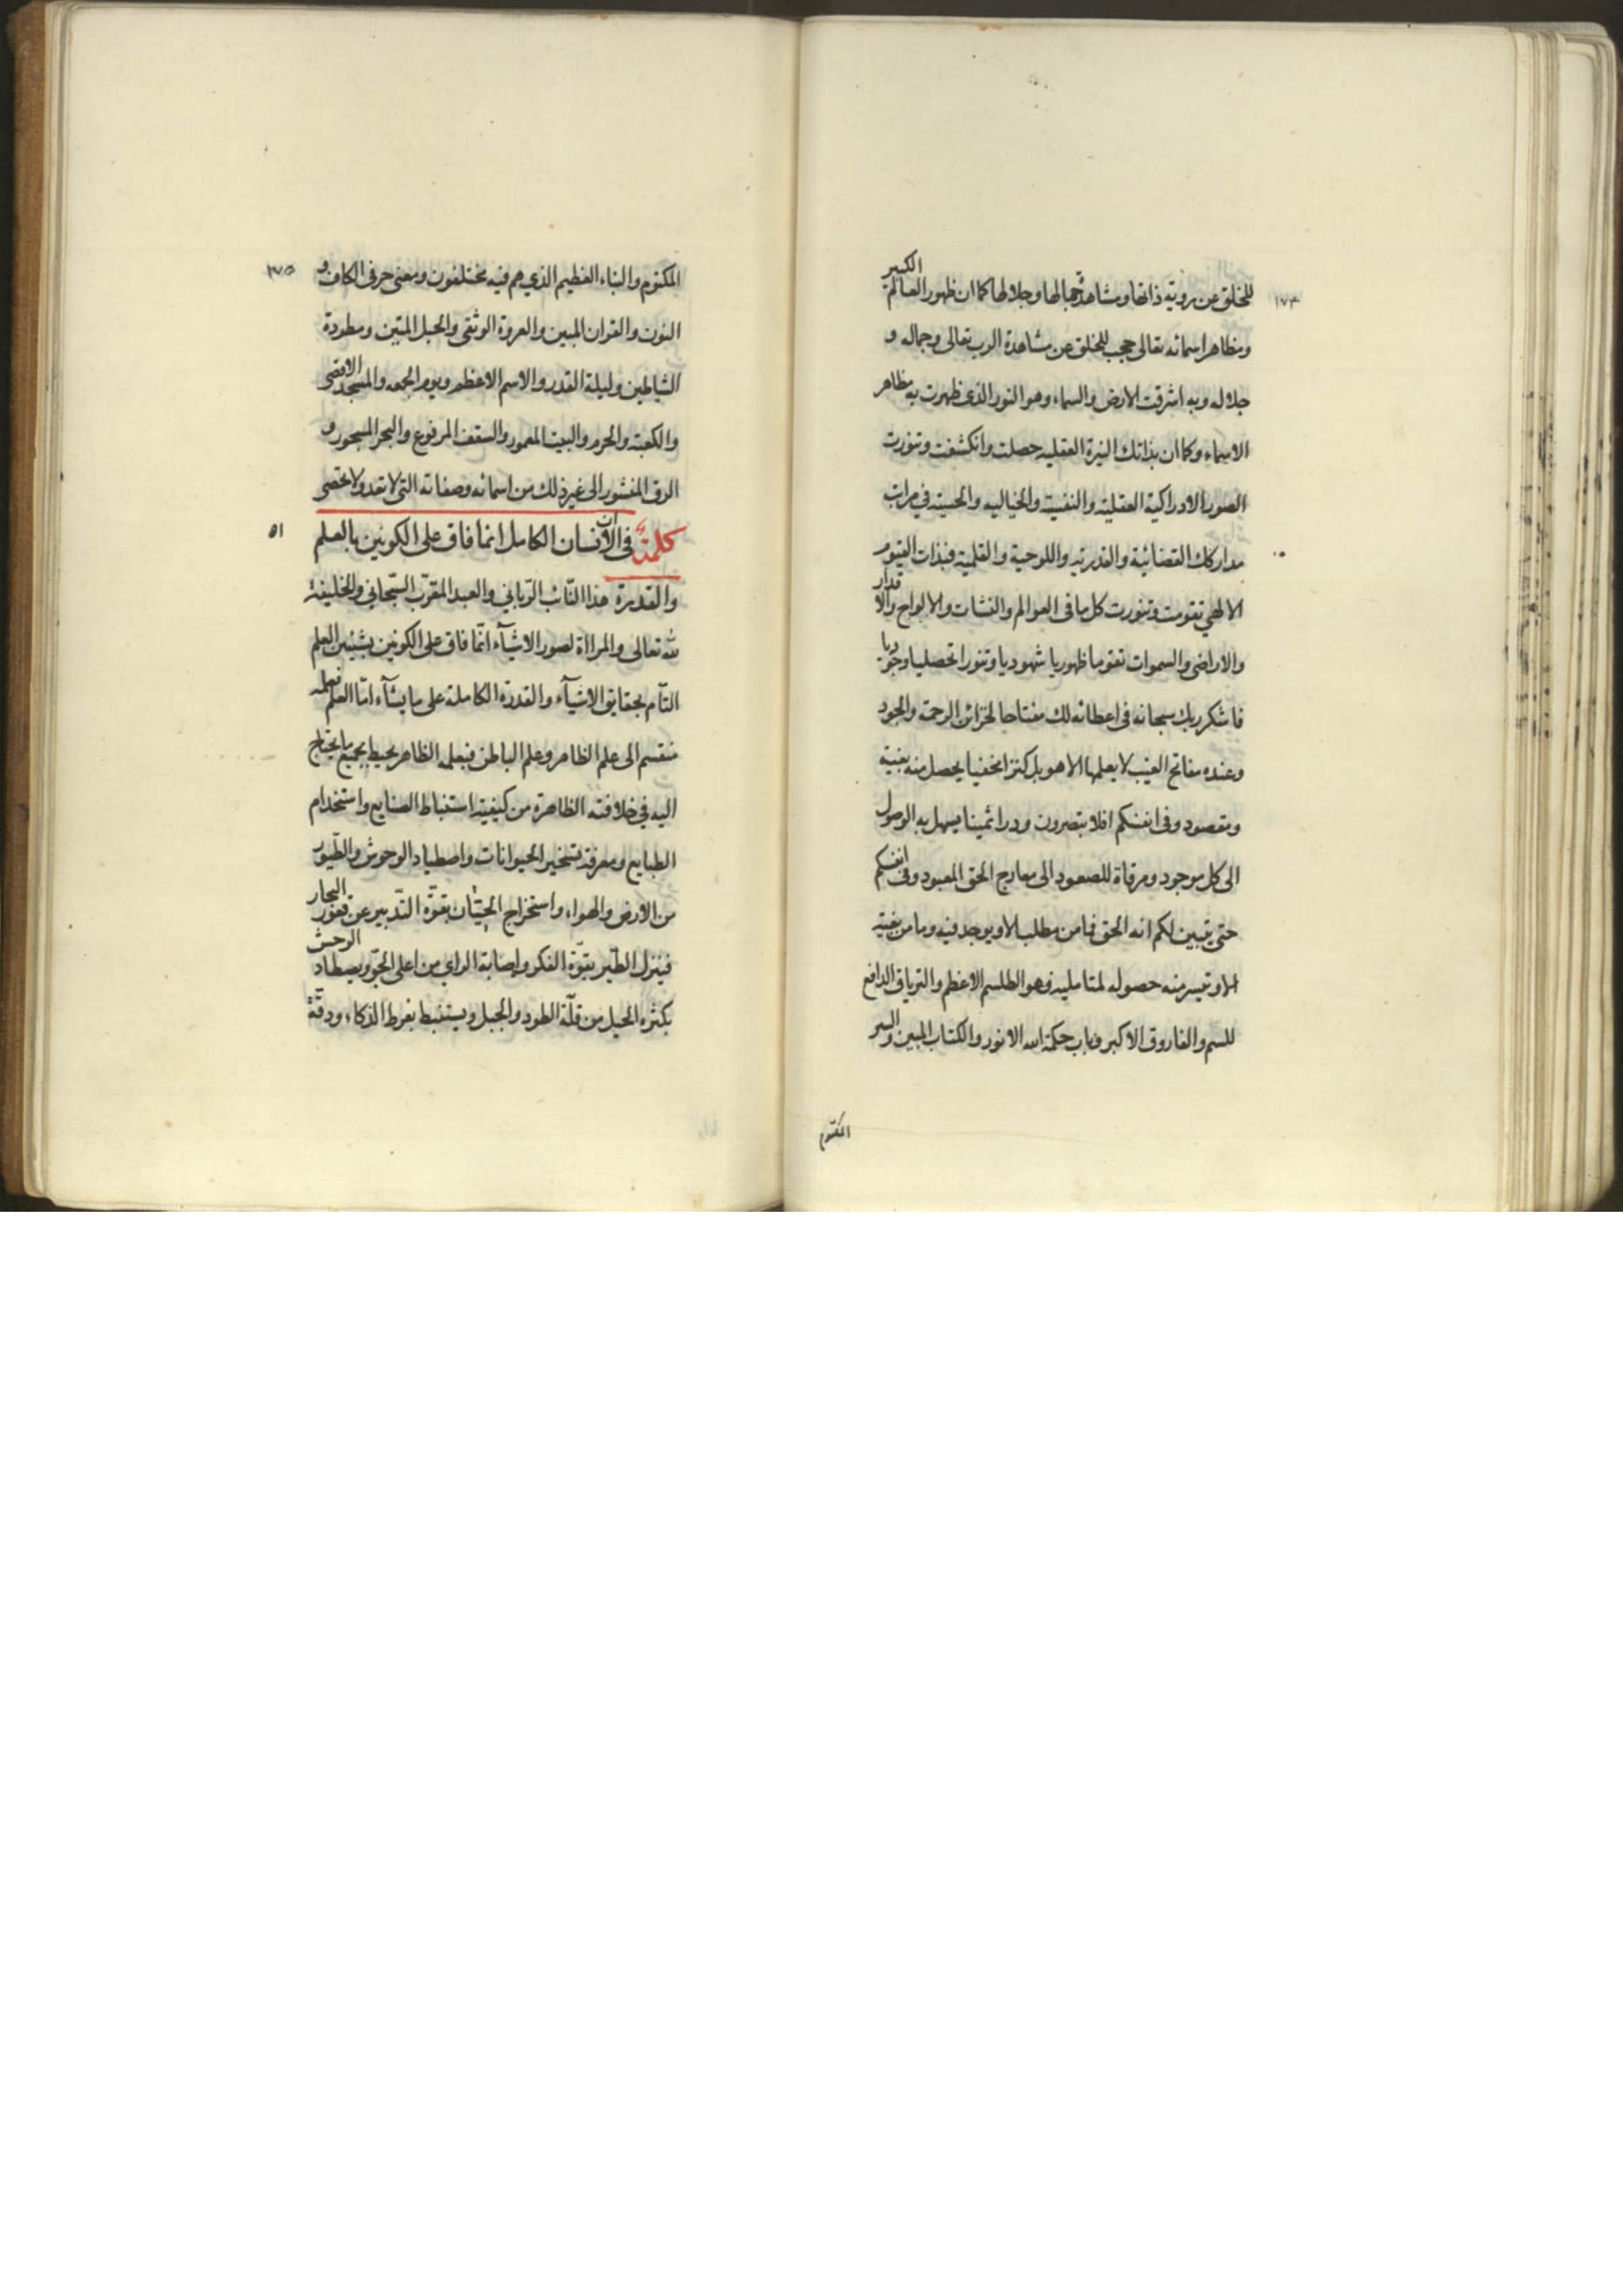 ١٧٤
للخلق عن روية ذاتها ومشاهدة جمالها وجلالها كما ان ظهور العالم الكبير
ومظاهر اسمائه تعالى حجب للخلق عن مشاهدة الرب تعالى وجماله و
جلاله وبه اشرقت الارض والسماء وهو النور الذى ظهرت به مظاهر
الاسماء وكما ان بذاتك النيرة العقليه حصلت وانكشفت وتنورت
الصور الادراكية العقلية والنفسية والخياليه والحسية في مراتب
مداركك القضائية والقدريه واللوحية والقلمية فبذات القيوم
الالهي تقومت وتنورت كل ما فى العوالم والنشات والالواح والاقدار
والاراضى والسموات تقوما ظهوريا شهوديا وتنورا تحصليا وجوديا
فاشكر ربك سبحانه فى اعطائه لك مفتاحا لخزائن الرحمة والجود
وعنده مفاتح الغيب لا يعلمها الا هو بل كنزا مخفيا يحصل منه بغية
ومقصود وفى انفسكم افلا تبصرون ودرا ثمينا يسهل به الوصول
الى كل موجود ومرقاة للصعود الى معارج الحق المعبود وفى انفسكم
حتى يتبين لكم انه الحق فما من مطلب الا ويوجد فيه وما من بغية
الا وتيسر منه حصوله لمتامليه وهو الطلسم الاعظم والترياق الدافع
للسم والفاروق الاكبر وباب حكمة الله الانور والكتاب المبين والسر
المكتوم
١٧٥
المكتوم والنباء العظيم الذي هم فيه مختلفون ومعنى حرفى الكاف و
النون والقران المبين والعروة الوثقى والحبل المتين ومطردة
الشياطين وليلة القدر والاسم الاعظم ويوم الجمعه والمسجد الاقصى
والكعبة والحرم والبيت المعمور والسقف المرفوع والبحر المسجور و
الرق المنشور الى غير ذلك من اسمائه وصفاته التى لا تعد ولا تحصى
٥١
كلمة فى ان الانسان الكامل انما فاق على الكونين بالعلم
والقدرة هذا النائب الرباني والعبد المقرب السبحاني والخليفة
لله تعالى والمراة لصور الاشيآء انّما فاق على الكونين بشيئين العلم
التآم بحقايق الاشيآء والقدرة الكاملة على ما يشآء امّا العلم فعلمه
منقسم الى علم الظاهر وعلم الباطن فبعلمه الظاهر يحيط بجميع ما يحتاج
اليه في خلافته الظاهرة من كيفية استنباط الصنايع واستخدام
الطبايع ومعرفة تسخير الحيوانات واصطياد الوحوش والطيور
من الارض والهواء واستخراج الحيتان بقوّة التدبير عن قعور البحار
فينزل الطير بقوّة الفكر واصابة الراي من اعلى الجوّ ويصطاد الوحش
بكثرة الحيل من قلّة الطود والجبل ويستنبط بفرط الذكاء ودقّة